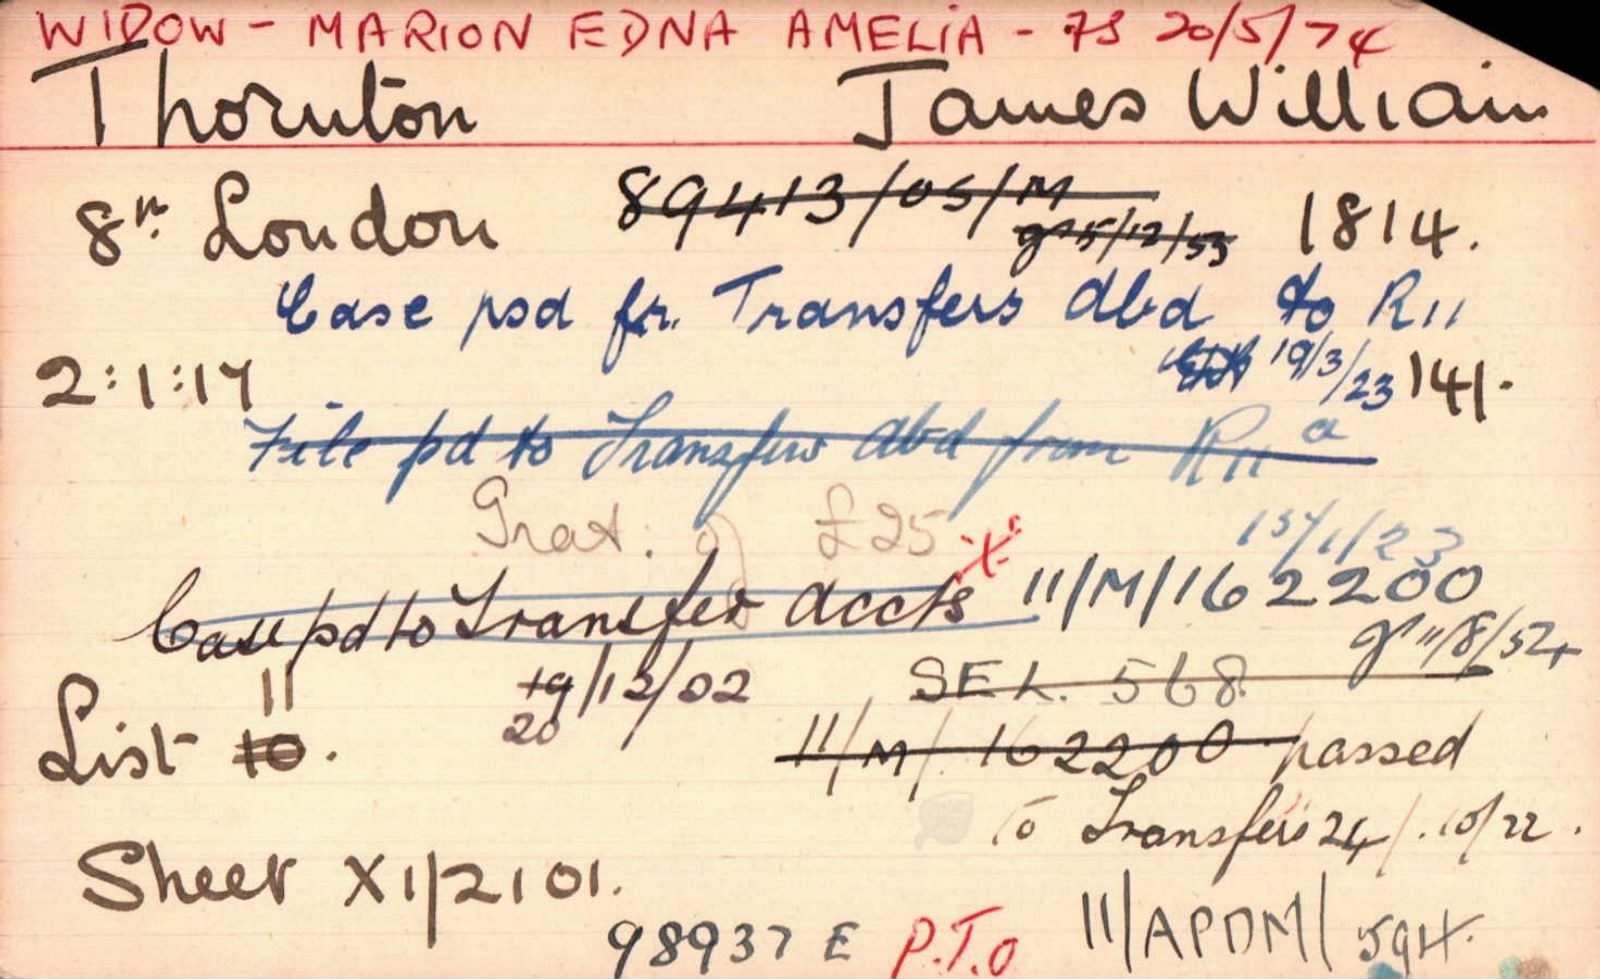 WIDOW - MARION EDNA AMELIA - 73 20/5/74
Thornton James William
8th London 89413/05/M 1814.
5/12/53
Case psd fr. Transfers Abd to R11
2:1:17 19/3/23 141.
File pd to Transfers Abd from R11 a
Grat: of £25 X 15/1/23
Case pd to Transfer Accts 11/M/162200
11/8/52
19/12/02 SEL. 568
20
11
List 10. 11/M/162200 passed
To Transfers 24/10/22.
Sheet X1/2101.
98937 E P.T.O 11/APDM/